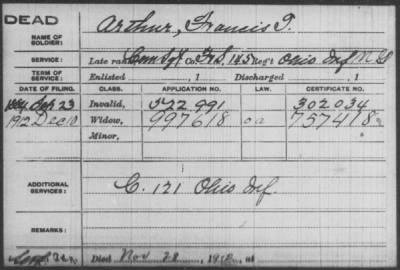 DEAD
NAME OF SOLDIER: Arthur, Francis T.
SERVICE: Late rank Com Sgt Co. F&S, 145 Reg't Ohio Inf N.G.
TERM OF SERVICE: Enlisted , 1 Discharged , 1
DATE OF FILING. CLASS. APPLICATION NO. LAW. CERTIFICATE NO.
Sep 23 Invalid, 522.991 302034
1912 Dec 10 Widow, 997618 757418
Minor,
ADDITIONAL SERVICES: C. 121 Ohio Inf.
REMARKS:
Died Nov 28, 1912, at